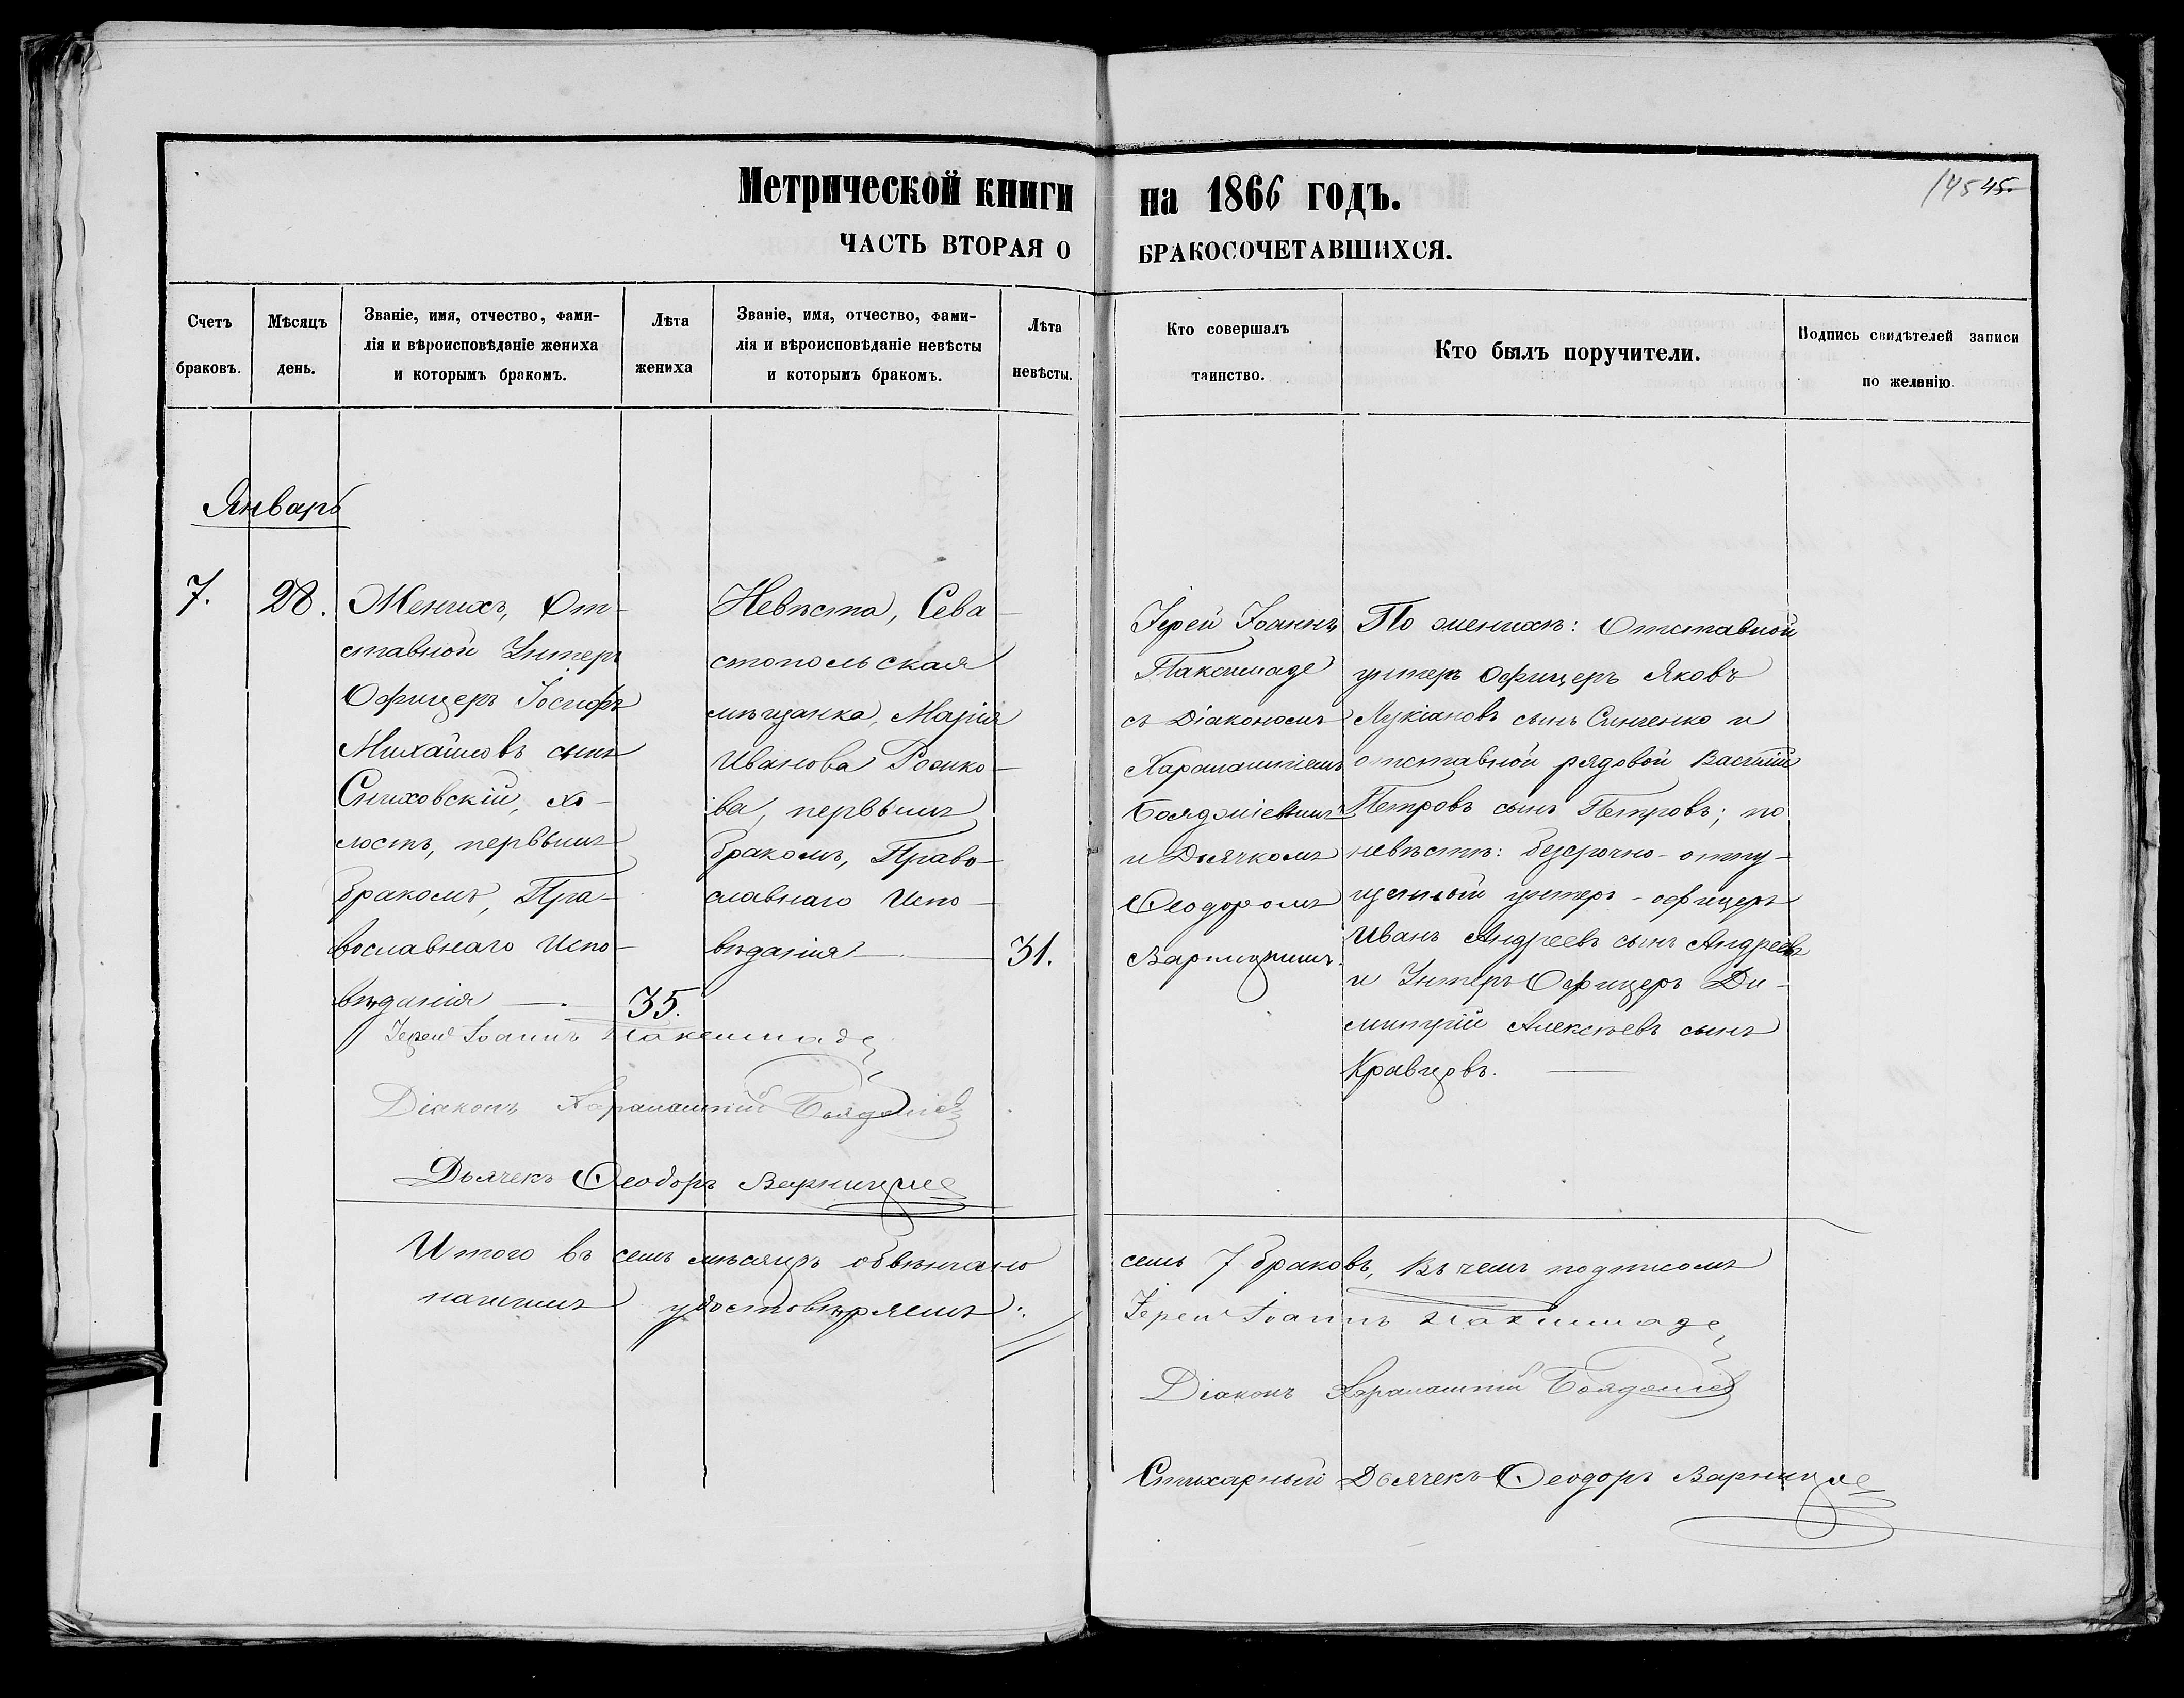 Метрической книги на 1866 годъ.
145 45.
ЧАСТЬ ВТОРАЯ О БРАКОСОЧЕТАВШИХСЯ.
Счетъ
браковъ.
Мѣсяцъ
день.
Званіе, имя, отчество, фами-
лія и вѣроисповѣданіе жениха
и которымъ бракомъ.
Лѣта
жениха
Званіе, имя, отчество, фами-
лія и вѣроисповѣданіе невѣсты
и которымъ бракомъ.
Лѣта
невѣсты.
Кто совершалъ
таинство.
Кто былъ поручители.
Подпись свидѣтелей записи
по желанію.
Январь
7.
28.
Женихъ, От-
ставной Унтеръ
Офицеръ Іосифъ
Михайловъ сынъ
Сниховскій, хо-
лостъ, первымъ
бракомъ, Пра-
вославнаго Испо-
вѣданія —.
35.
Невѣста, Сева-
стопольская
мѣщанка, Марія
Иванова
ва, первымъ
бракомъ, Право-
славнаго Испо-
вѣданія —
31.
Іерей Іоаннъ
Паксимаде
съ Діакономъ
Харалампіемъ
и Дьячкомъ
Ѳеодоромъ
Варницкимъ.
По женихѣ: Отставной
унтеръ Офицеръ Яковъ
Лукіановъ сынъ Синченко и
отставной рядовой Василій
Петровъ сынъ Петровъ; по
невѣстѣ: безсрочно-отпу-
щенный унтеръ-офицеръ
Иванъ Андреевъ сынъ Андреевъ
и Унтеръ-Офицеръ Ди-
митрій Алексѣевъ сынъ
Кравцовъ. —
Іерей Іоаннъ Паксимаде
Діаконъ Харалампій
Дьячекъ Ѳеодоръ
Итого въ семъ мѣсяцѣ обвѣнчано
семь 7 браковъ, въ чемъ подписомъ
нашимъ удостовѣряемъ:
Іерей Іоаннъ Паксимаде
Діаконъ Харалампій
Стихарный Дьячекъ Ѳеодоръ